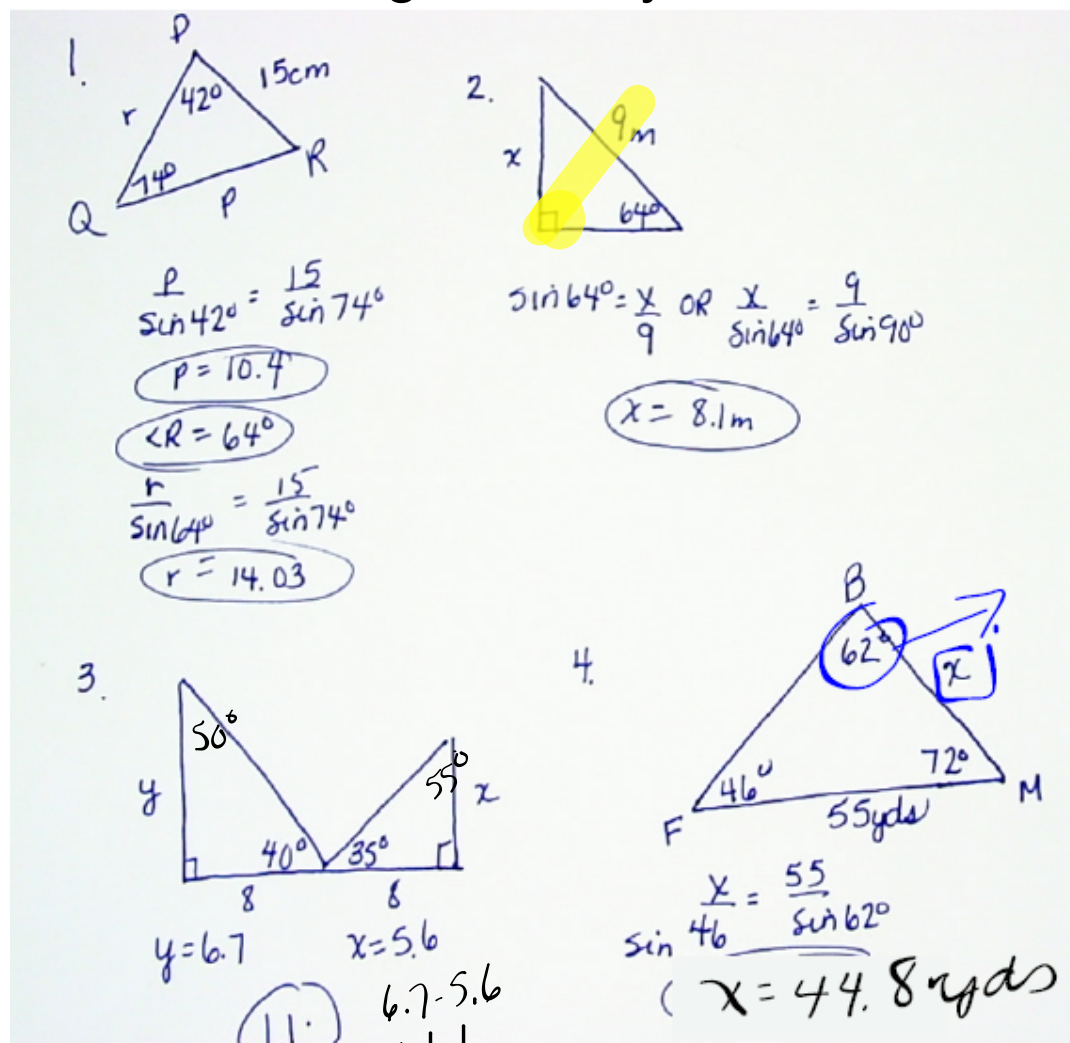 1.
P
15cm
42°
r
74°
R
Q
P
P/sin42° = 15/sin74°
P = 10.4
<R = 64°
r/sin64° = 15/sin74°
r = 14.03
2.
9m
x
64°
sin64° = x/9 OR x/sin64° = 9/sin90°
x = 8.1m
3.
50°
55°
y
x
40°
35°
8
8
y=6.7 x=5.6
6.7-5.6
4.
B
62°
x
46°
72°
F
55yds
M
x/sin 46 = 55/sin62°
x = 44.8 yds